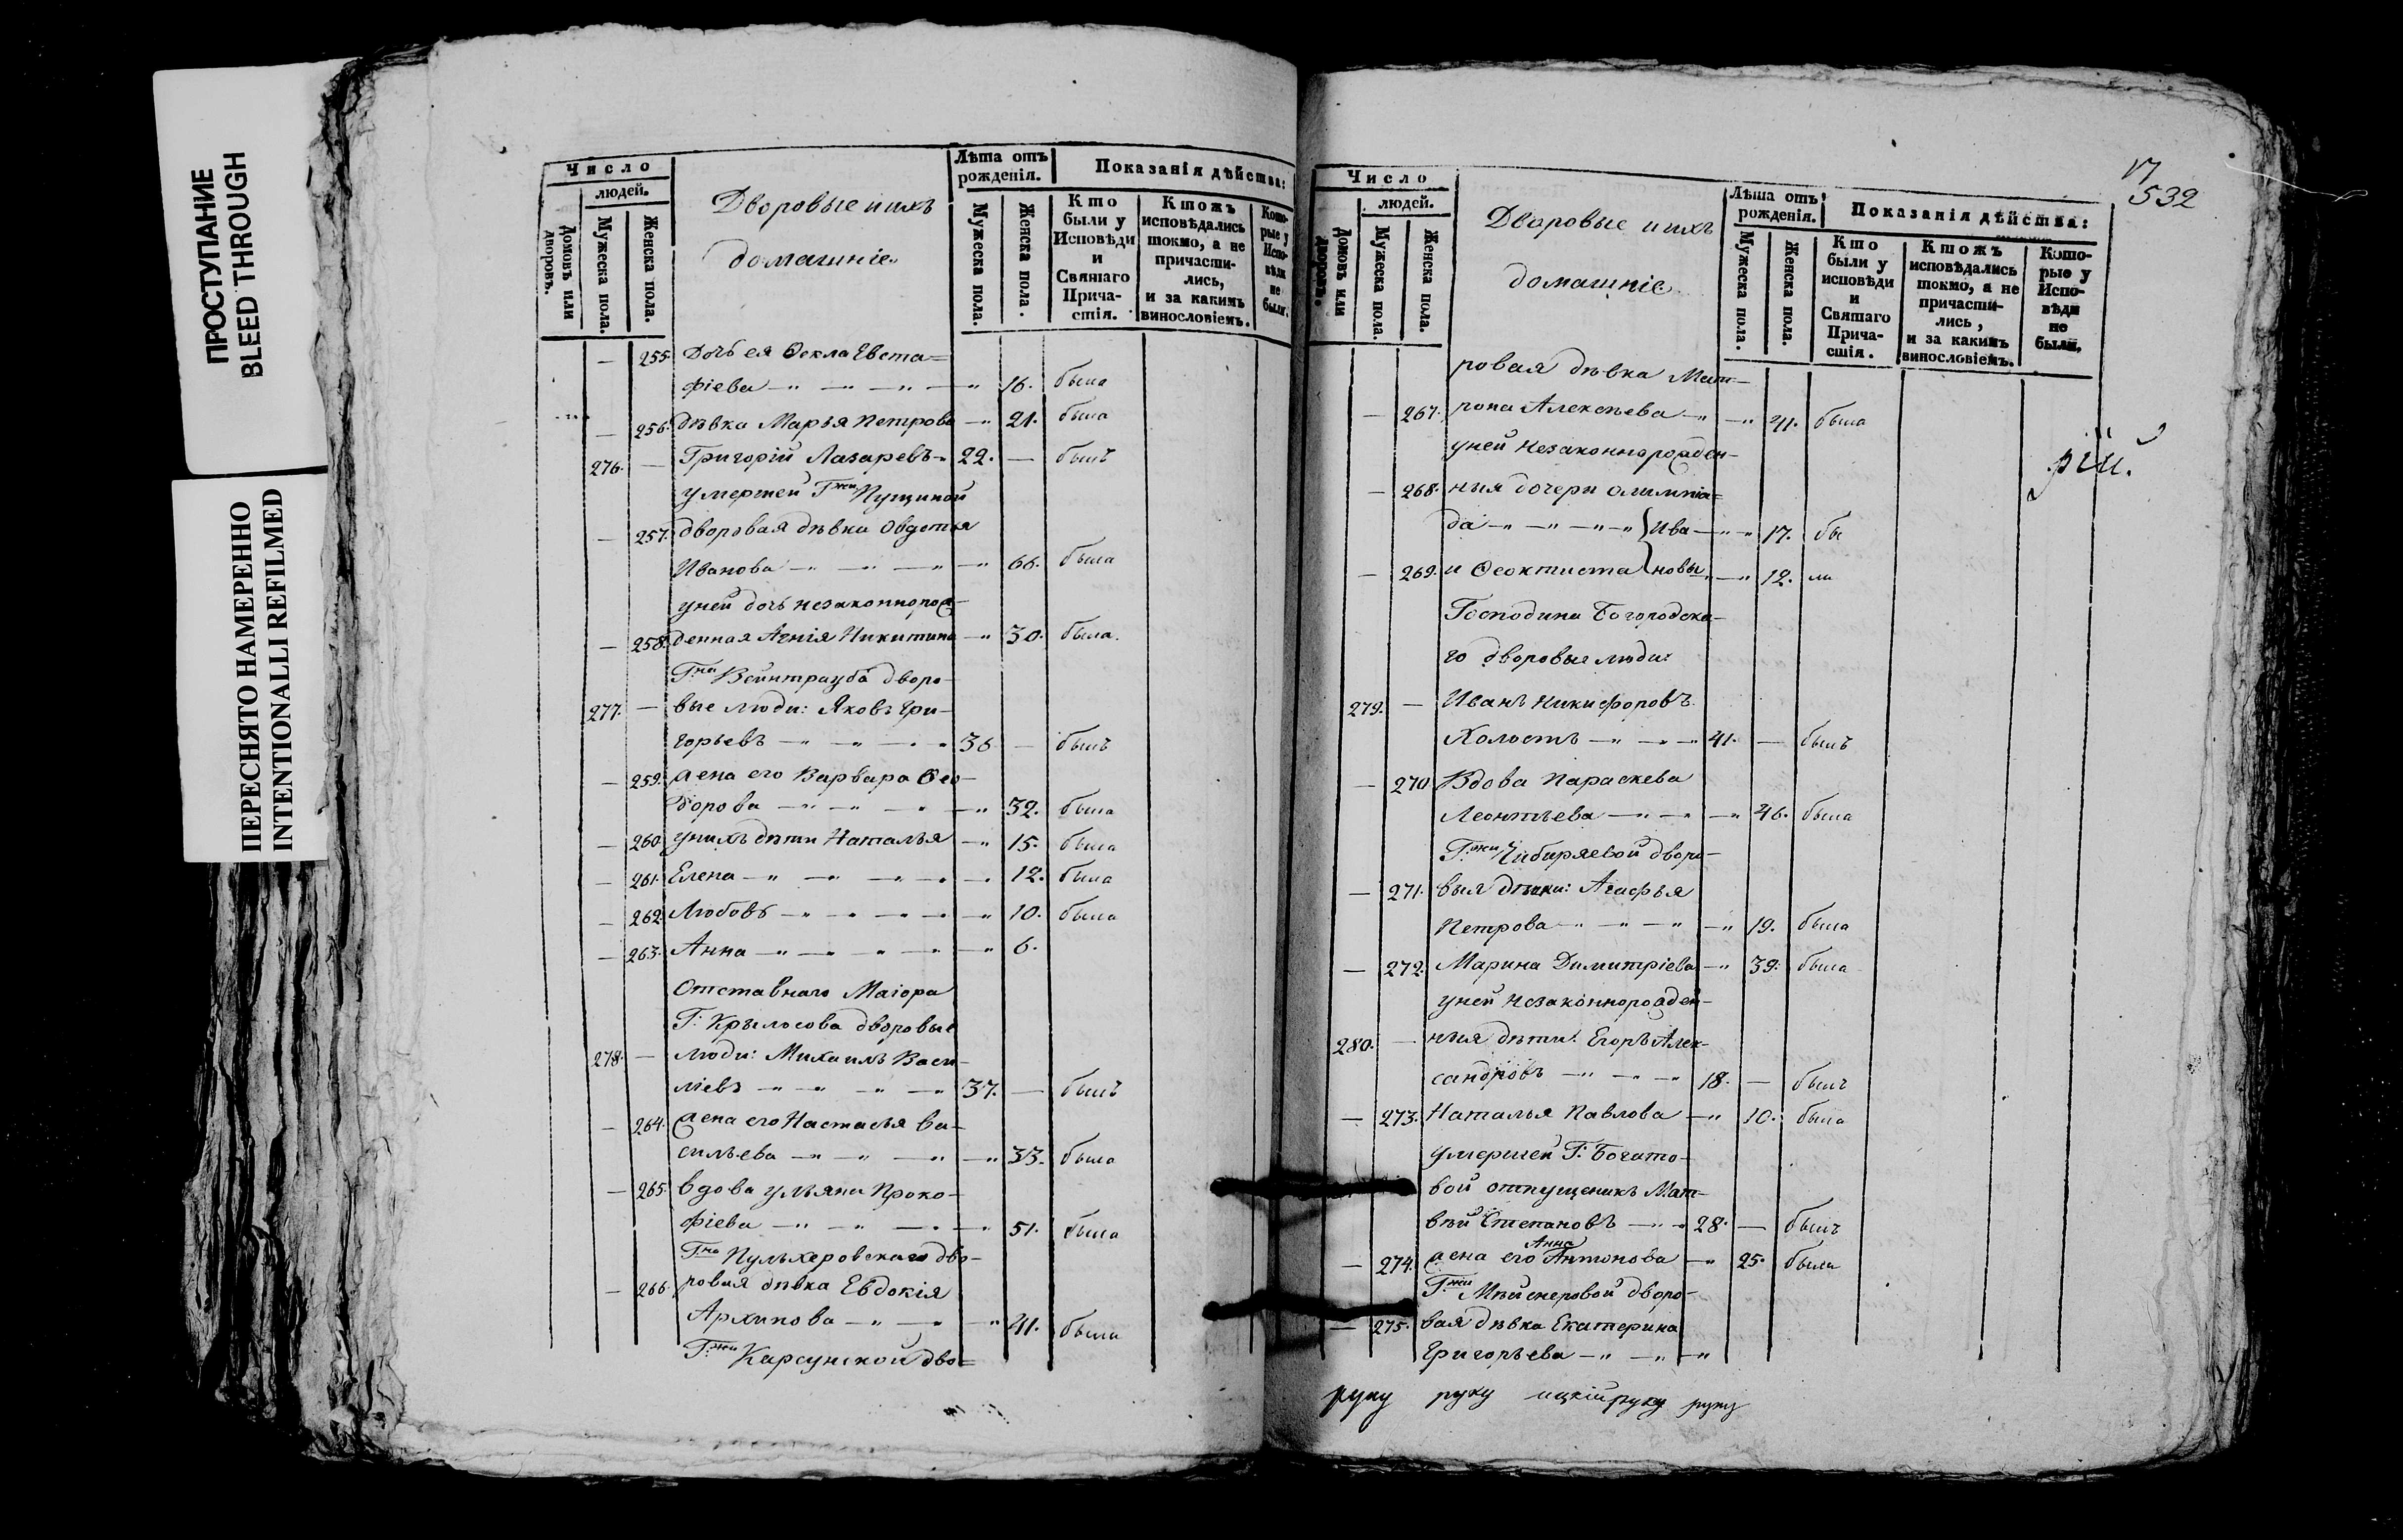 ПРОСТУПАНИЕ
BLEED THROUGH
ПЕРЕСНЯТО НАМЕРЕННО
INTENTIONALLI REFILMED
Число
людей.
Домовъ или дворовъ.
Мужеска пола.
Женска пола.
Дворовые и ихъ
домашніе
Лѣта отъ рожденія.
Мужеска пола.
Женска пола.
Показанія дѣйства:
Кто были у Исповѣди и Святаго Причастія.
Ктожъ исповѣдались токмо, а не причастились, и за какимъ винословіемъ.
Которые у Исповѣди не были.
— 255. Дочь ея Ѳекла Евста=
фіева — 16. была
— 256. дѣвка Марья Петрова — 21. была
276. — Григорій Лазаревъ 22. — былъ
умершей Гжи Пущиной
— 257. дворовая дѣвка Овдотья
Иванова — 66. была
у ней дочь незаконнорож-
— 258. денная Агнія Никитина — 30. была.
Гна Вейнтрауба дворо-
277. — вые люди: Яковъ Гри-
горьевъ — 36 — былъ
— 259. жена его Варвара Ѳео-
дорова — 32. была
— 260. у нихъ дѣти Наталья — 15. была
— 261. Елена — 12. была
— 262. Любовь — 10. была
— 263. Анна — 6.
Отставнаго Маіора
Г: Крылосова дворовые
278. — люди: Михаилъ Васи-
ліевъ — 37. — былъ
— 264. жена его Настасья Ва-
сильева — 33. была
— 265. вдова Ульяна Проко-
фіева — 51. была
Гна Пульхеровскаго дво-
— 266. ровая дѣвка Евдокія
Архипова — 41. была
Гжи Карсунской дво=
17
532
Число
людей.
Домовъ или дворовъ.
Мужеска пола.
Женска пола.
Дворовые и ихъ
домашніе
Лѣта отъ рожденія.
Мужеска пола.
Женска пола.
Показанія дѣйства:
Кто были у исповѣди и Святаго Причастія.
Ктожъ исповѣдались токмо, а не причастились, и за какимъ винословіемъ.
Которые у Исповѣди не были.
ровая дѣвка Мат-
— 267. рона Алексѣева — 41. была
у ней незаконнорожден-
— 268. ныя дочери Олимпіа=
да — Ива — 17. бы
— 269. и Ѳеоктиста новы — 12. ли
рій.
Господина Богородска-
го дворовые люди:
279. — Иванъ Никифоровъ
Холостъ — 41. — былъ
— 270 Вдова Параскева
Леонтьева — 46. была
Г:жи Чибиряевой дворо-
— 271. выя дѣвки: Агафья
Петрова — 19. была
— 272. Марина Димитріева — 39. была
у ней незаконнорожден-
280. — ныя дѣти: Егоръ Алек-
сандровъ — 18. — былъ
— 273. Наталья Павлова — 10. была
умершей Г: Богато-
вой отпущеникъ Мат-
вѣй Степановъ — 28. — былъ
Анна
— 274. жена его Антонова — 25. была
Г:жи Мейснеровой дворо-
— 275. вая дѣвка Екатерина
Григорьева —
руку руку ицкій руку руку